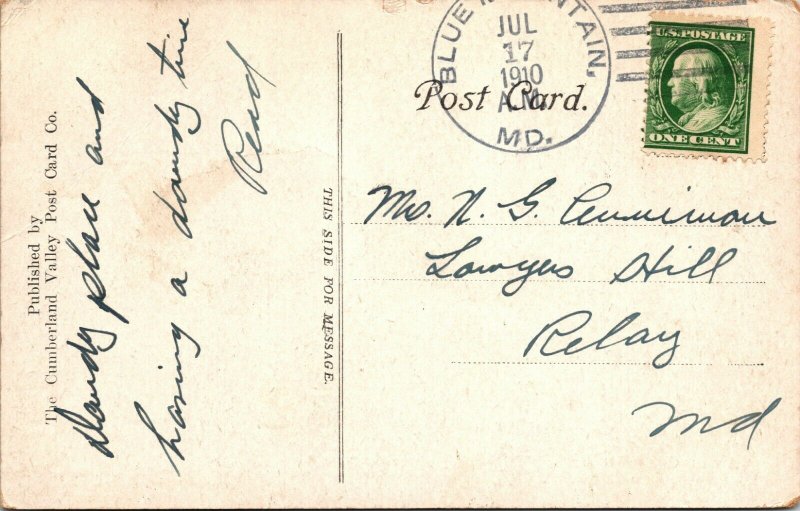 Published by
The Cumberland Valley Post Card Co.
Dandy place and
having a dandy time
Read
THIS SIDE FOR MESSAGE.
BLUE MOUNTAIN,
JUL
17
1910
A.M.
MD.
Post Card.
U.S. POSTAGE
ONE CENT
N. G.
Lawyers Hill
Relay
Md